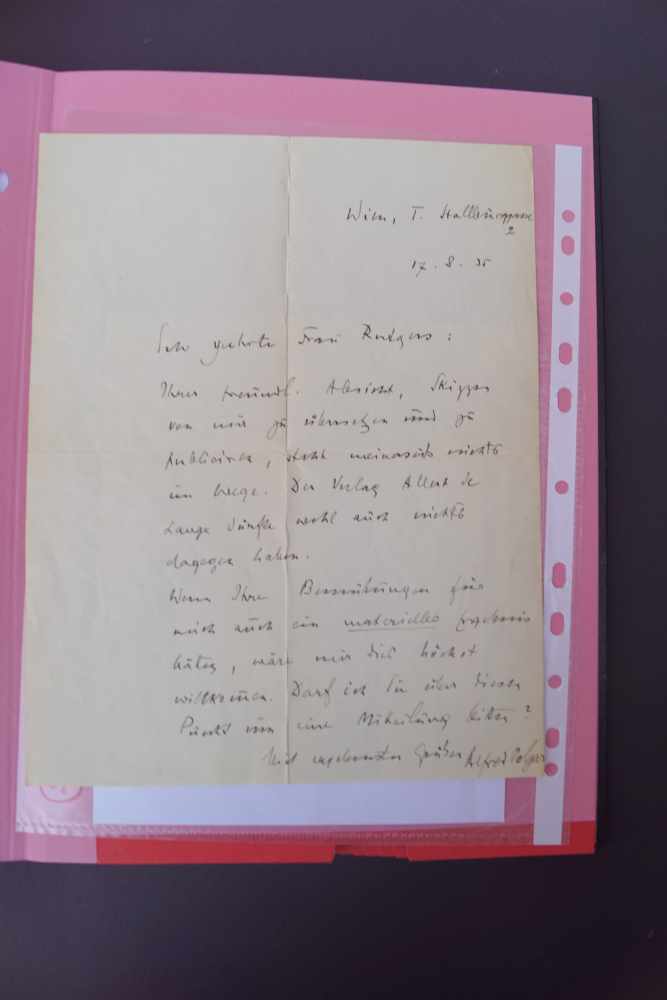 Wien, I. Stallburggasse
2
17. 8. 35
Sehr geehrte Frau Rutgers:
Ihrer freundl. Absicht, Skizzen
von mir zu übersetzen und zu
publicieren, steht meinerseits nichts
im Wege. Der Verlag Allert de
Lange dürfte wohl auch nichts
dagegen haben.
Wenn Ihre Bemühungen für
mich auch ein materielles Ergebnis
hätten, wäre mir dies höchst
willkommen. Darf ich Sie über diesen
Punkt um eine Mitteilung bitten?
Mit ergebensten Grüßen Alfred Polgar